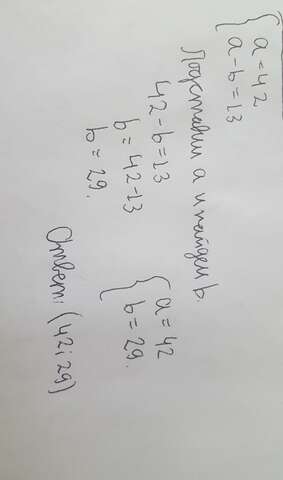 { a = 42
a - b = 13
Подставим а и найдем b.
42 - b = 13
b = 42 - 13
b = 29.
{ a = 42
b = 29.
Ответ: (42; 29)